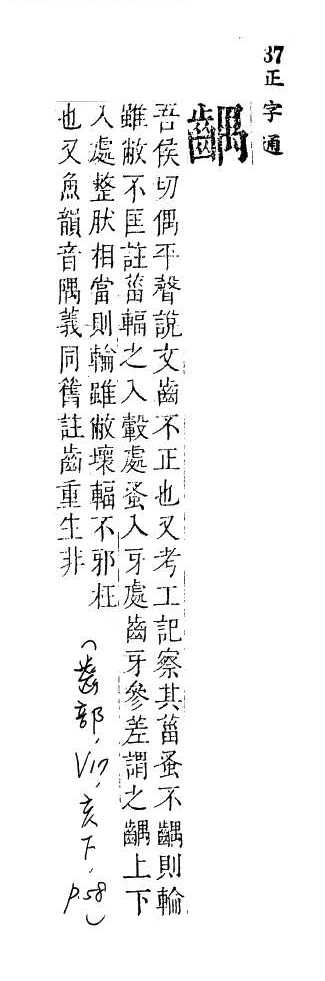 37正字通
齵
吾侯切偶平聲說文齒不正也又考工記察其菑蚤不齵則輪
雖敝不匡註菑輻之入轂處蚤入牙處齒牙參差謂之齵上下
入處整肰相當則輪雖敝壞輻不邪枉
也又魚韻音隅義同舊註齒重生非
(齒部,V17,亥下,p.58)